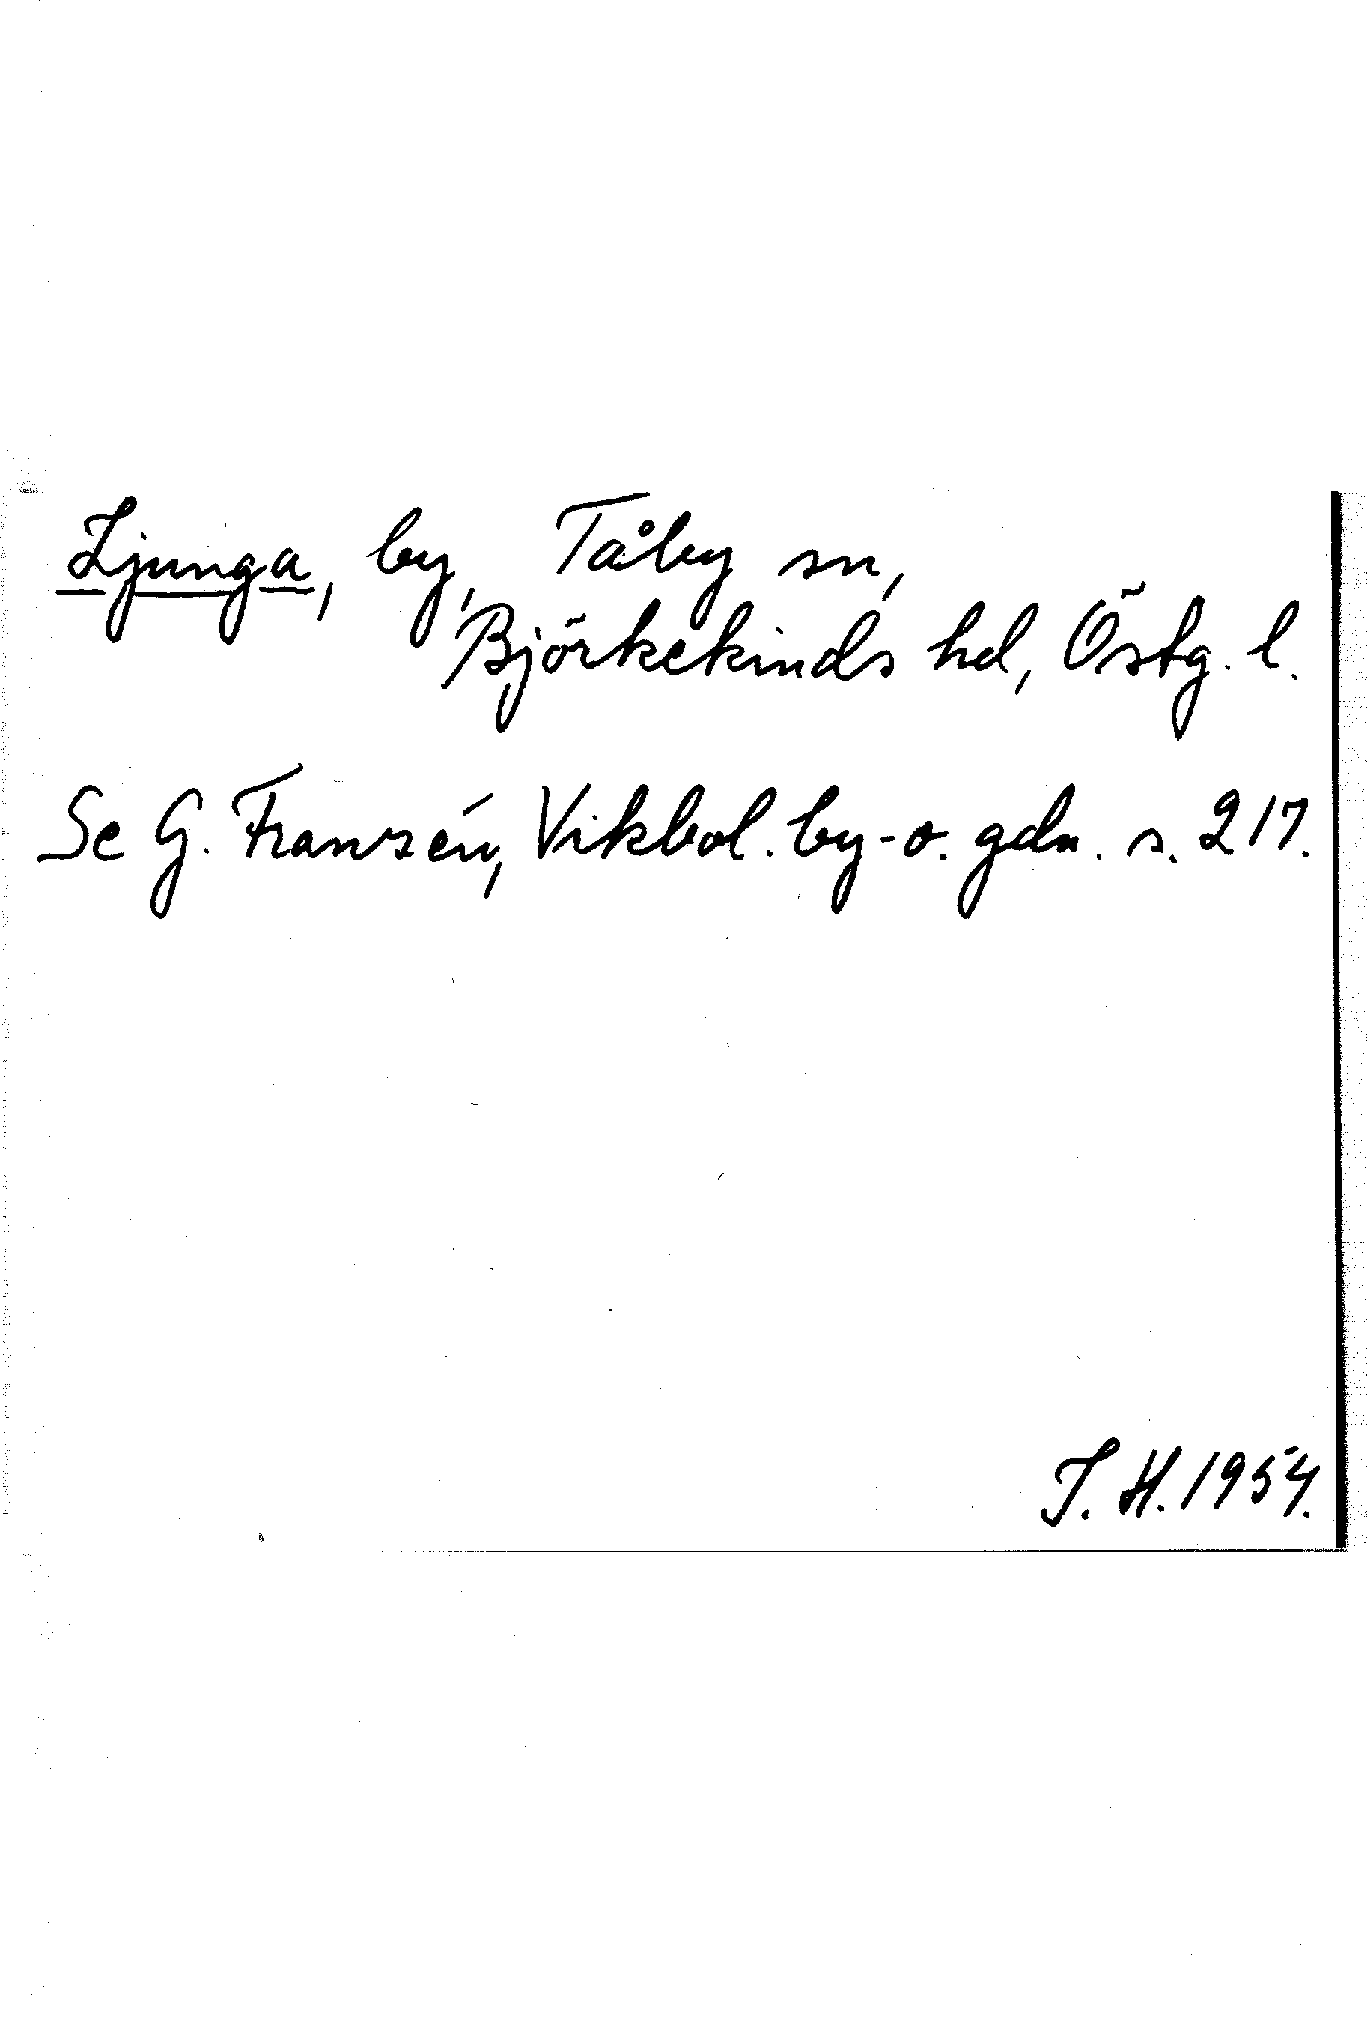 Ljunga, by, Tåby sn,
Björkekinds hd, Östg. l.
Se G. Franzén, Vikbol. by- o. gdn. s. 217.
I. H. 1954.